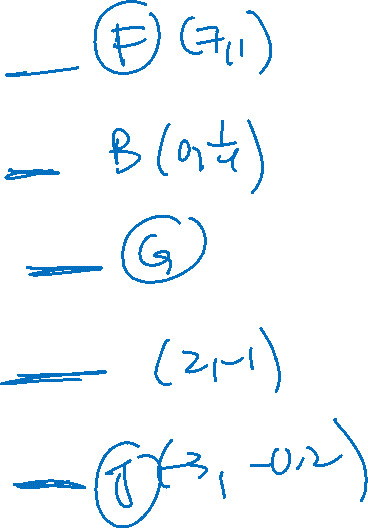 F (7,1)
B (0, 1/4)
G
(2,-1)
J (-3, -0.2)